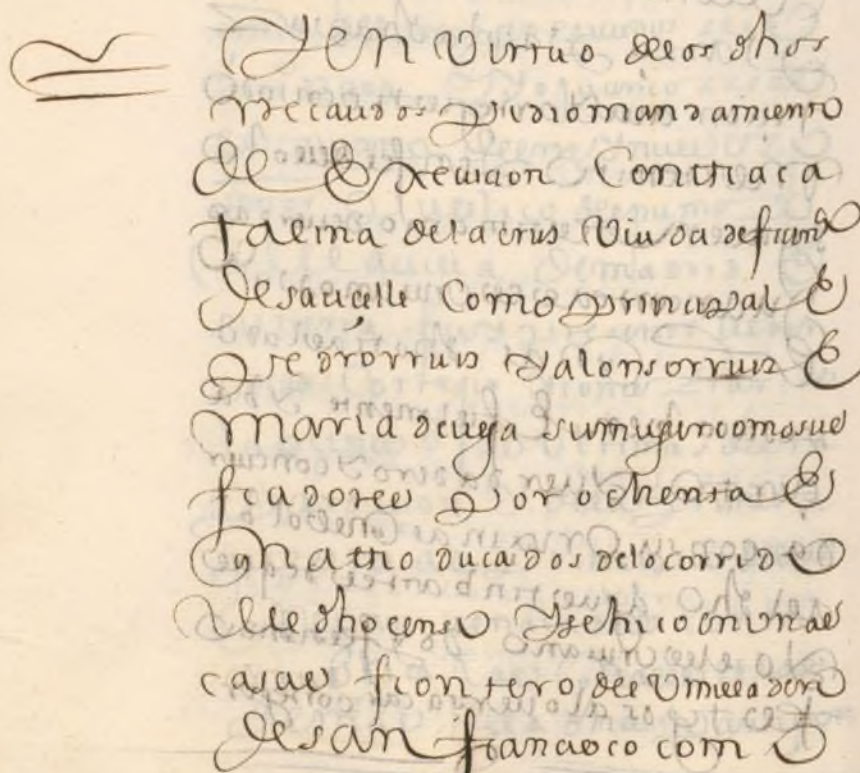 Y en Virtud de los dhos
Recaudos se dio mandamiento
de Execucion Contra ca
talina de la crus Viuda de Juan
de saucelle Como principal E
pedro rruis Y alonso rruis E
maria de su muger como sus
fiadores por ochenta E
quatro ducados de lo corrido
de dho censo Y se hico en unas
casas frontero del
de san francisco con